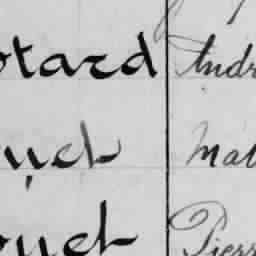 otard Andr
ouet Mat
ouet Pierr